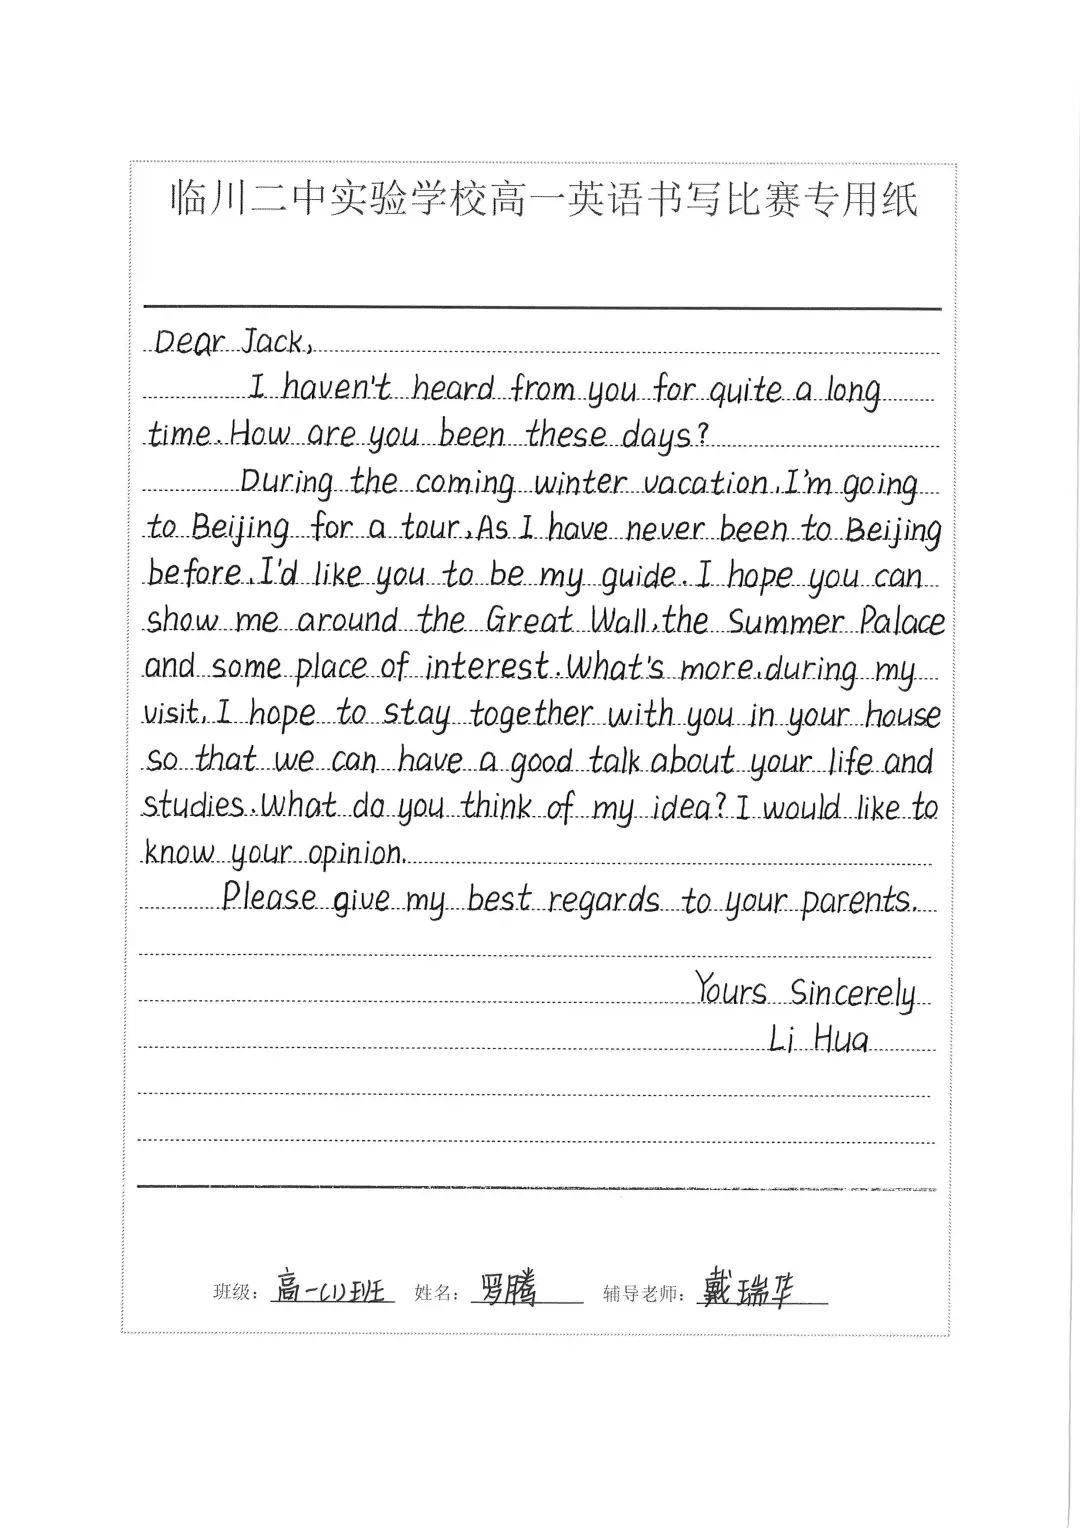 临川二中实验学校高一英语书写比赛专用纸
Dear Jack,
I haven't heard from you for quite a long
time. How are you been these days?
During the coming winter vacation, I'm going
to Beijing for a tour, As I have never been to Beijing
before, I'd like you to be my guide. I hope you can
show me around the Great Wall, the Summer Palace
and some place of interest. What's more, during my
visit, I hope to stay together with you in your house
so that we can have a good talk about your life and
studies. What do you think of my idea? I would like to
know your opinion.
Please give my best regards to your parents.
Yours Sincerely
Li Hua
班级: 高一(1)班 姓名: 罗腾 辅导老师: 戴瑞华